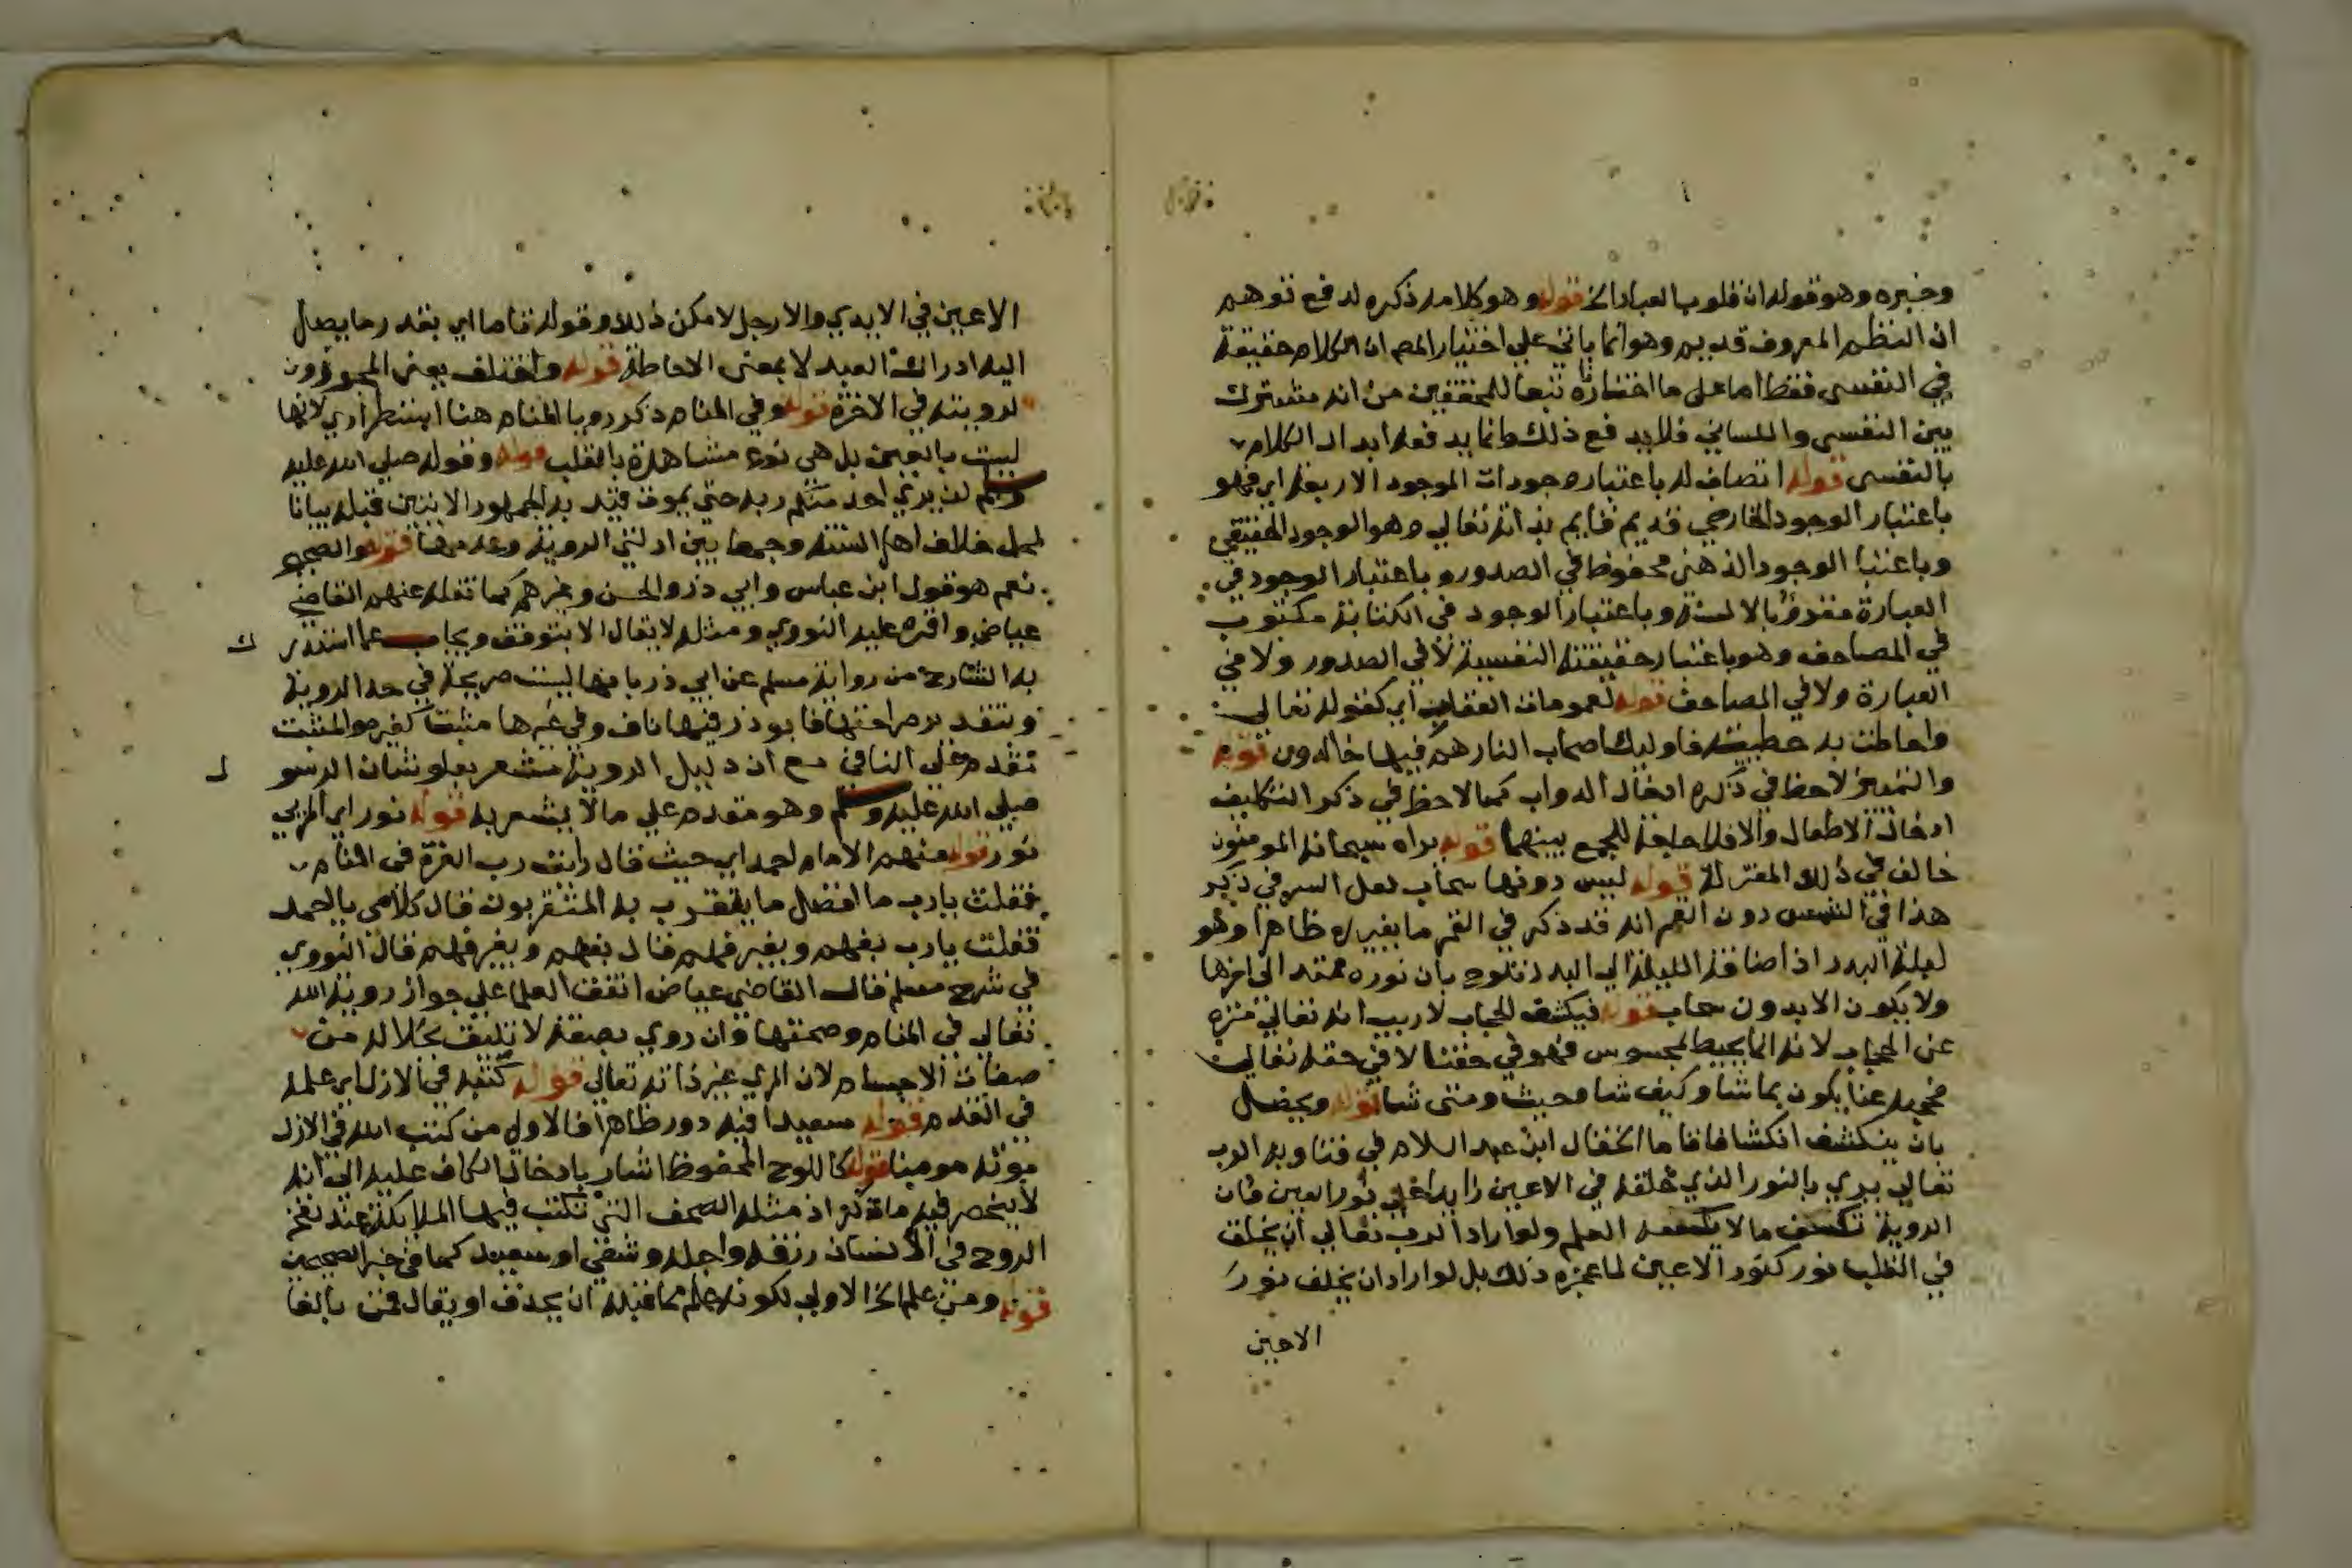 وخبره وهو قوله ان قلوب العباد الخ قوله وهو كلامه ذكره لدفع توهم
ان النظم المعروف قديم وهو انما ياتي علي اختيار المص ان الكلام حقيقة
في النفسي فقط اما على ما اختاره تبعا للمحققين من انه مشترك
بين النفسي واللساني فلا يدفع ذلك وانما يدفعه ابدال الكلام
بالنفسي قوله اتصاف له باعتبار وجودات الموجود الاربعة اي فهو
باعتبار الوجود الخارجي قديم قايم بذاته تعالي وهو الوجود الحقيقي
وباعتبا الوجود الذهني محفوظ في الصدور وباعتبار الوجود في
العبارة مقروؤ بالالسنة وباعتبار الوجود في الكتابة مكتوب
في المصاحف وهو باعتبار حقيقته النفسية لا في الصدور ولا في
العبارة ولا في المصاحف قوله لعمومات العقاب اي كقوله تعالي
واحاطت به خطيئته فاوليك اصحاب النار هم فيها خالدون قوله
والنميري لاحظ في ذكره ادخال الدواب كما لاحظ في ذكر التكليف
ادخال الاطفال والا فلا حاجة للجمع بينهما قوله يراه سبحانه المومنون
خالف في ذلك المعتزلة قوله ليس دونها سحاب لعل السر في ذكر
هذا في الشمس دون القمر انه قد ذكر في القمر ما يغيره ظاهرا وهو
ليلة البدر اذ اضافة الليلة الي البدر تلوح بان نوره ممتد الى اخرها
ولا يكون الا بدون سحاب قوله فيكشف الحجاب لا ريب انه تعالي منزه
عن الحجاب لانه انما يحيط بمحسوس فهو في حقنا لا في حقه تعالي
فحجبه عنا يكون بما شا وكيف شا وحيث ومتى شا قوله ويحصل
بان ينكشف انكشافا تاما الخ قال ابن عبد السلام في فتاويه الرب
تعالي يري بالنور الذي خلقه في الاعين زايدا علي نور العين فان
الروية تكشف ما لا يكشفه العلم ولو اراد الرب تعالي ان يخلق
في القلب نور كنور الاعين لما عجزه ذلك بل لو اراد ان يخلق نور
الاعين
الاعين في الايدي والارجل لامكن ذلك وقوله تاما اي بقدر ما يصل
اليه ادراك العبد لا بمعنى الاحاطة قوله واختلف يعني المجوزون
لرويته في الاخرة قوله وفي المنام ذكر رويا المنام هنا استطرادي لانها
ليست بالعين بل هي نوع مشاهدة بالقلب قوله وقوله صلي الله عليه
وسلم لن يري احد منكم ربه حتى يموت قيد به الجمهور الايتين قبله بيانا
لمحل خلاف اهل السنة وجمعا بين ادلتي الروية وعدمها قوله والصحيح
نعم هو قول ابن عباس وابي ذر والحسن وغيرهم كما نقله عنهم القاضي
عياض واقره عليه النووي ومثله لا يقال الا بتوقف ويجاب عما استدر ك
به الشارح من رواية مسلم عن ابي ذر بانها ليست صريحة في حد الروية
وبتقدير صراحتها فابو ذر فيها ناف وفي غيرها مثبت كغيره والمثبت
مقدم علي النافي مع ان دليل الروية مشعر بعلو شان الرسو ل
صلي الله عليه وسلم وهو مقدم علي ما لا يشعر به قوله نور اي المربي
نور قوله منهم الامام احمد اي حيث قال رايت رب العزة في المنام
فقلت يا رب ما افضل ما يتقرب به المتقربون قال كلامي يا احمد
فقلت يا رب بفهم وبغير فهم قال بفهم وبغير فهم قال النووي
في شرح مسلم قال القاضي عياض اتفق العلما علي جواز روية الله
تعالي في المنام وصحتها وان روي بصفة لا تليق بجلاله من
صفات الاجسام لان المري غير ذاته تعالي قوله كتبه في الازل اي علمه
في القدم قوله سعيدا فيه دور ظاهرا فالاولي من كتب الله في الازل
موته مومنا قوله كاللوح المحفوظ اشار بادخال الكاف عليه الى انه
لا ينحصر فيه ما ذكر اذ مثله الصحف التي تكتب فيها الملايكة عند نفخ
الروح في الانسان رزقه واجله وشقي او سعيد كما في خبر الصحيحين
قوله ومن علم الخ الاولي لكونه علم مما قبله ان يحذف او يقال فمن بالفا